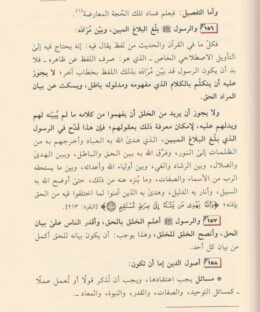 وأما التفصيل: فيعلم فساد تلك الحجة المعارضة(١).
١٥٦ والرسول ﷺ بلّغ البلاغ المبين، وبيّن مُرَادَه:
فكلّ ما في القرآن والحديث من لفظ يقال فيه: إنه يحتاج فيه إلى
التأويل الاصطلاحي الخاص ـ الذي هو: صرف اللفظ عن ظاهره ـ فلا
بد أن يكون الرسول قد بيَّن مُرَاده بذلك اللفظ بخطاب آخر؛ لا يجوز
عليه أن يتكلَّم بالكلام الذي مفهومه ومدلوله باطل، ويسكت عن بيان
المراد الحق.
ولا يجوز أن يريد من الخلق أن يفهموا من كلامه ما لم يُبينه لهم
ويدلهم عليه، لإمكان معرفة ذلك بعقولهم؛ فإن هذا قدح في الرسول
الذي بلَّغ البلاغ المبين، الذي هدى الله به العباد وأخرجهم به من
الظلمات إلى النور، وفرَّق الله به بين الحق والباطل، وبين الهدى
والضلال، وبين الرشاد والغي، وبين أولياء الله وأعدائه، وبين ما يستحقه
الرب من الأسماء والصفات، وما يُنزه عنه من ذلك، حتى أوضح الله به
السبيل، وأنار به الدليل، وهدى به الذين آمنوا لما اختلفوا فيه من الحق
بإذنه؛ ﴿وَاللَّهُ يَهْدِي مَن يَشَاءُ إِلَىٰ صِرَاطٍ مُّسْتَقِيمٍ﴾ [البقرة: ٢١٣].
١٥٧ والرسول ﷺ أعلم الخلق بالحق، وأقدر الناس على بيان
الحق، وأنصح الخلق للخلق، وهذا يوجب: أن يكون بيانه للحق أكمل
من بيان كل أحد.
١٥٨ أصول الدين إما أن تكون:
* مسائل يجب اعتقادها، ويجب أن تُذكر قولًا أو تُعمل عملًا
ـ كمسائل التوحيد، والصفات، والقدر، والنبوة، والمعاد ـ.